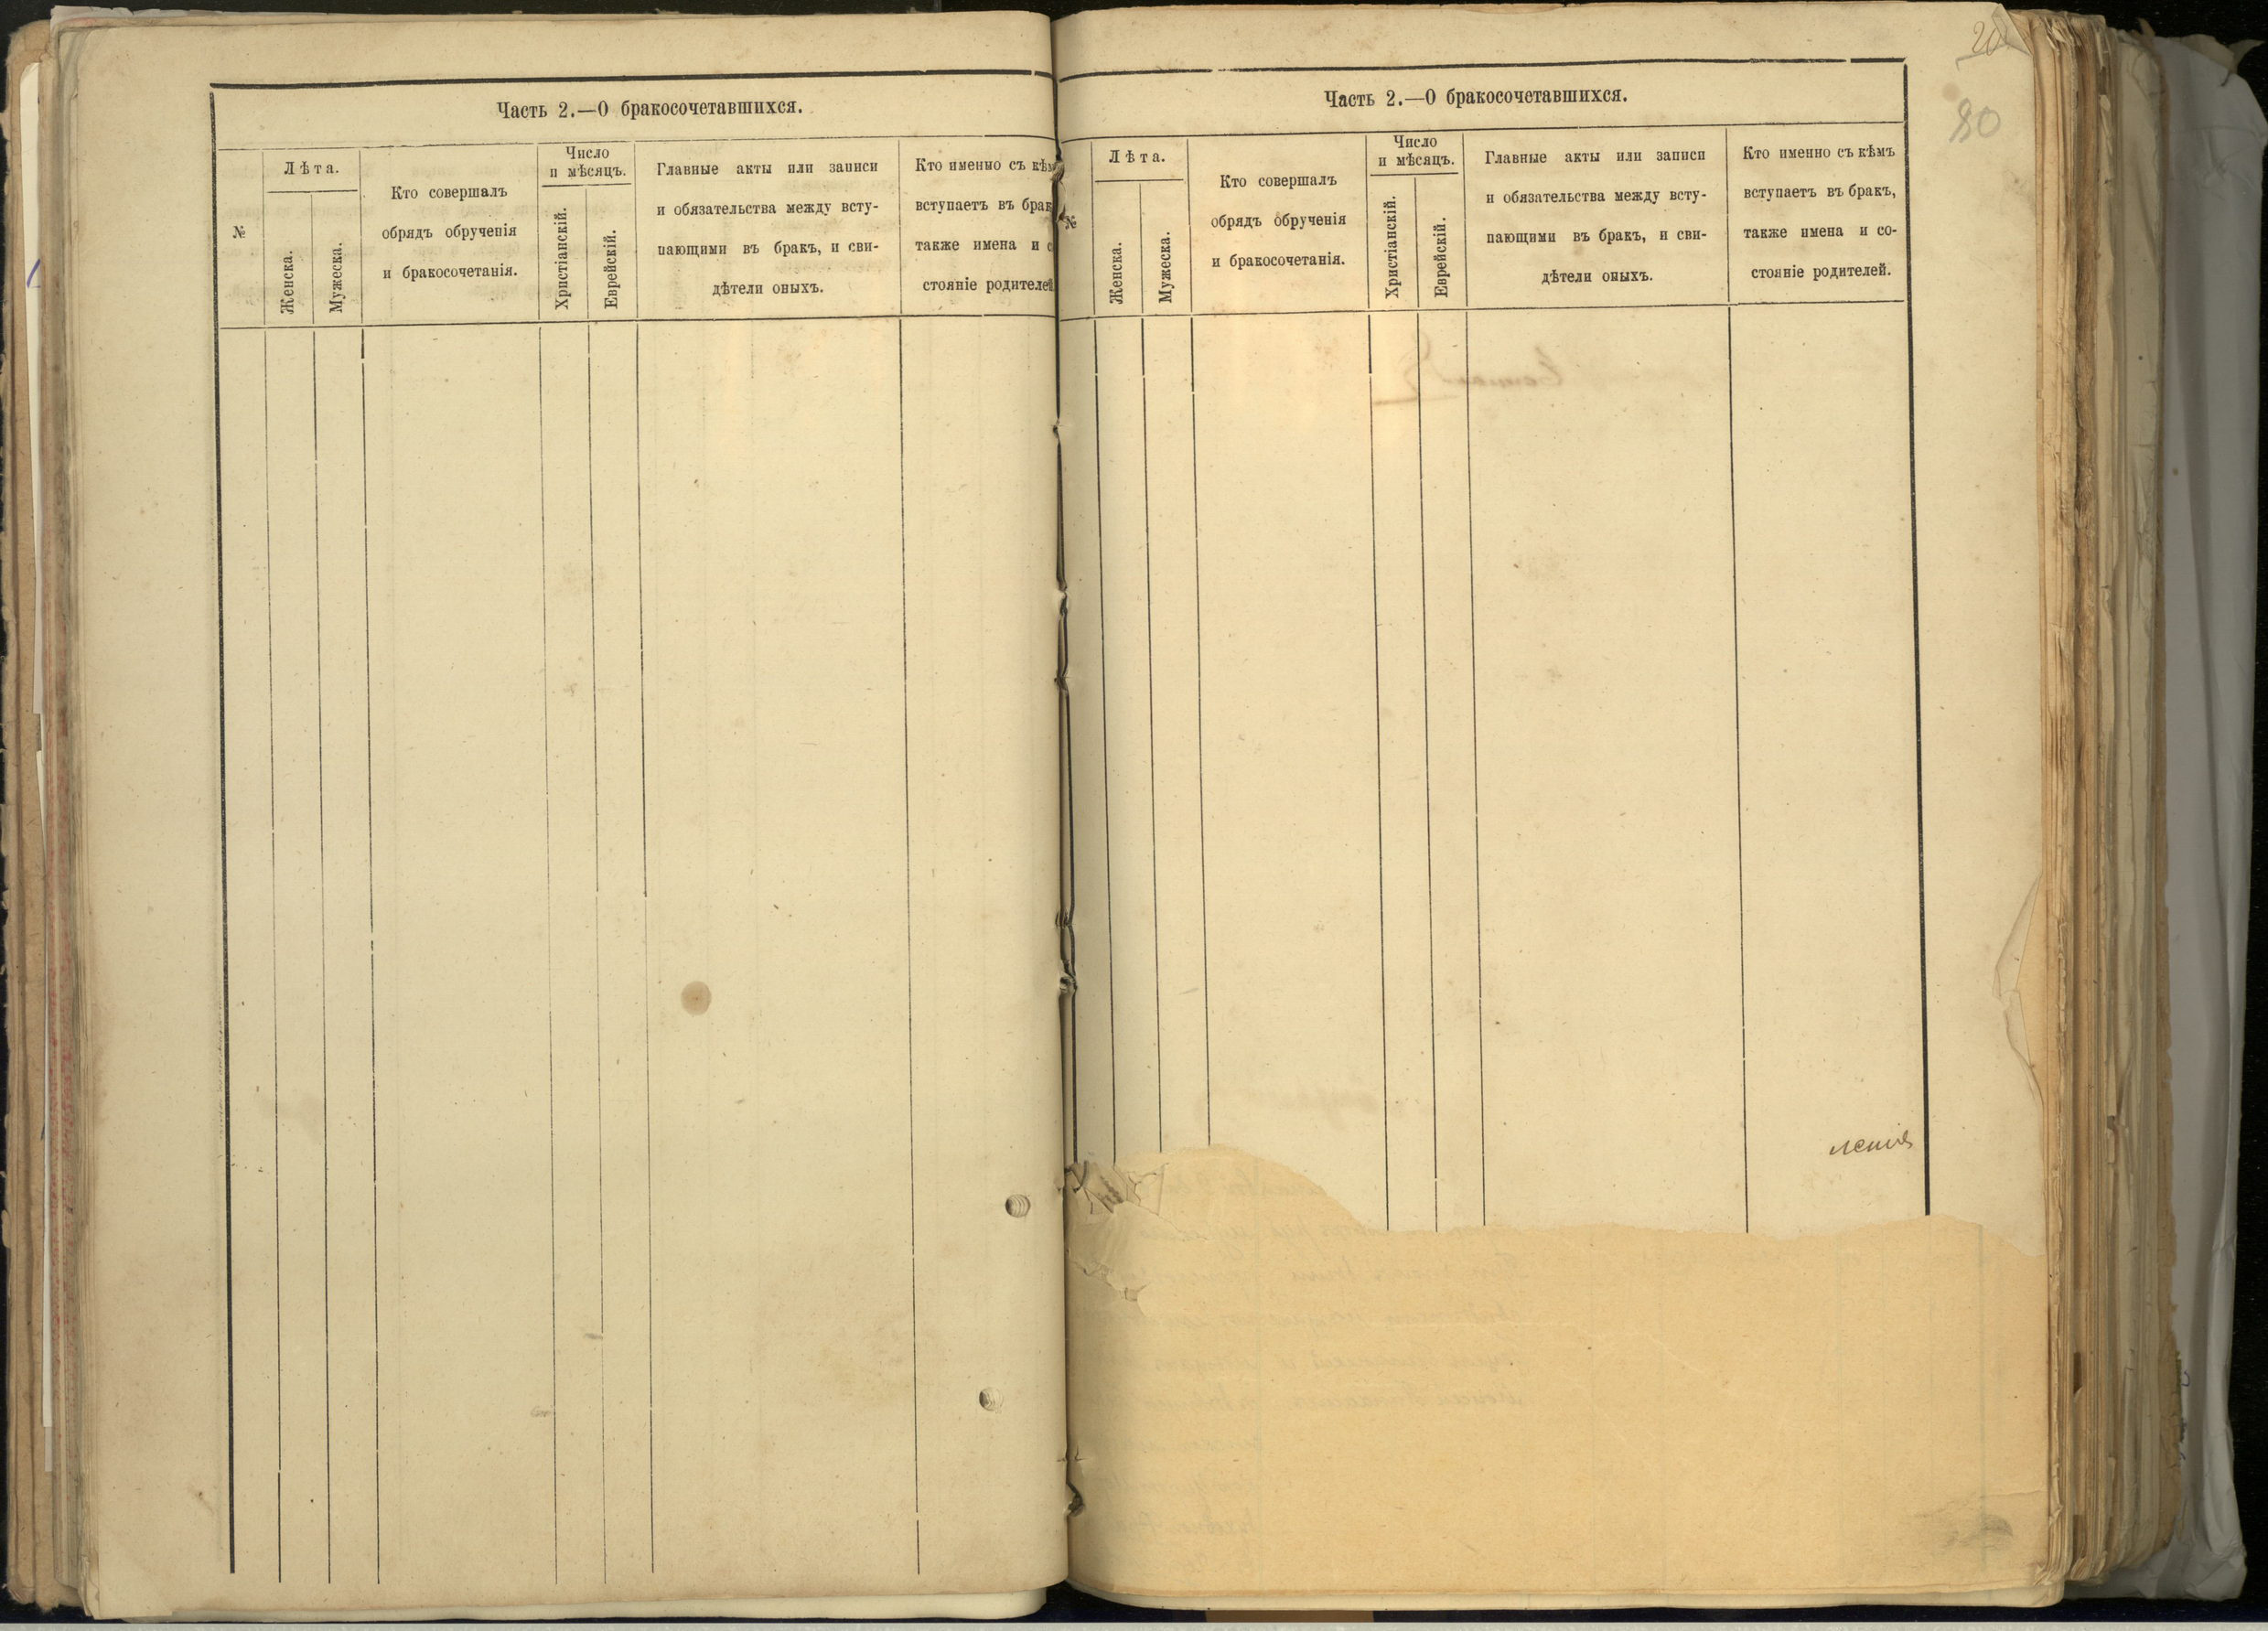 Часть 2.—О бракосочетавшихся.
№
Лѣта.
Женска.
Мужеска.
Кто совершалъ
обрядъ обрученія
и бракосочетанія.
Число
и мѣсяцъ.
Христіанскій.
Еврейскій.
Главные акты или записи
и обязательства между всту-
пающими въ бракъ, и сви-
дѣтели оныхъ.
Кто именно съ кѣмъ
вступаетъ въ брак
также имена и с
стояніе родителей
80
Часть 2.—О бракосочетавшихся.
№
Лѣта.
Женска.
Мужеска.
Кто совершалъ
обрядъ обрученія
и бракосочетанія.
Число
и мѣсяцъ.
Христіанскій.
Еврейскій.
Главные акты или записи
и обязательства между всту-
пающими въ бракъ, и сви-
дѣтели оныхъ.
Кто именно съ кѣмъ
вступаетъ въ бракъ,
также имена и со-
стояніе родителей.